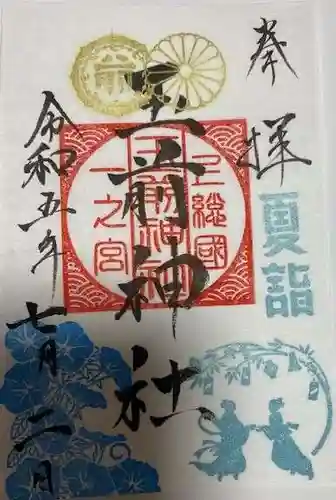 奉拝
夏詣
玉前神社
上総國
玉前神社
一之宮
令和五年
七月二日